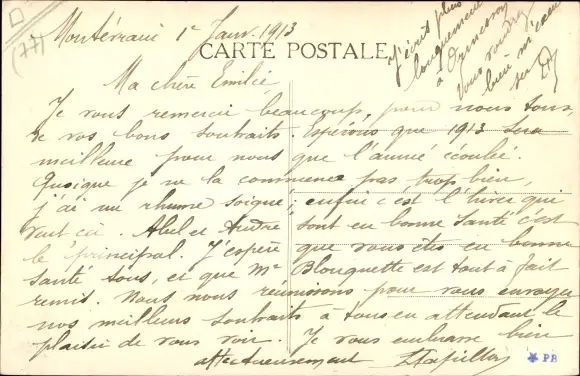 (77)
Montérraui 1r Janv. 1913
CARTE POSTALE
J'écrit plus
longuement
à Ormesson
Vous voudrez
bien m'excu
ser D
Ma chère Emilie
Je vous remercie beaucoup, pour nous tous,
de vos bons souhaits. Espérons que 1913 sera
meilleure pour nous que l'année écoulée.
Quoique je ne la commence pas trop bien,
j'ai un rhume soigné; enfin c'est l'hiver qui
veut ça. Abel et André sont en bonne santé c'est
le principal. J'espère que vous êtes en bonne
santé tous, et que Mr Blouquette est tout à fait
remis. Nous nous réunissons pour vous envoyer
nos meilleurs souhaits à tous en attendant le
plaisir de vous voir. Je vous embrasse bien
affectueusement
PB